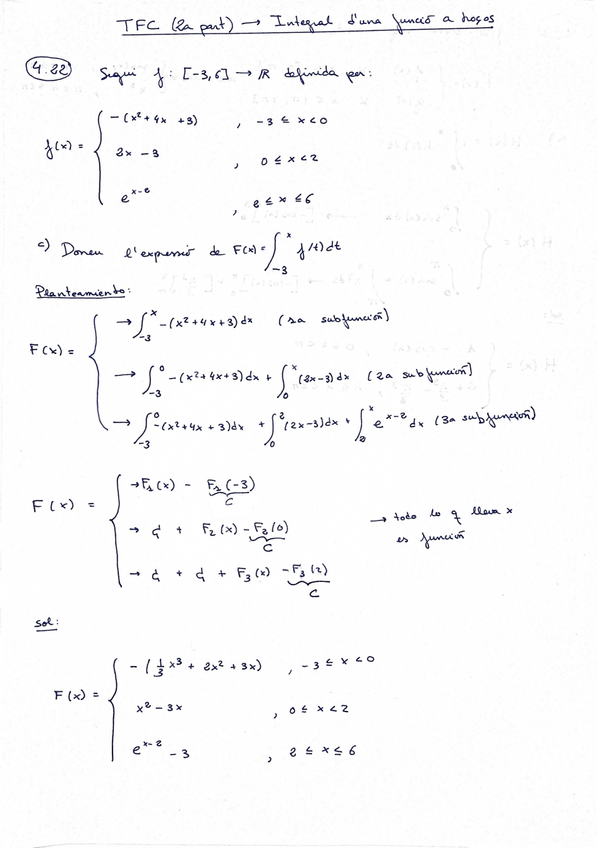 TFC (2a part) → Integral d'una funció a trossos
4.22 Sigui f: [-3,6] → ℝ definida per:
f(x) = { -(x² + 4x + 3) , -3 ≤ x < 0
2x - 3 , 0 ≤ x < 2
e^{x-2} , 2 ≤ x ≤ 6
c) Doneu l'expressió de F(x) = ∫_{-3}^{x} f(t) dt
Planteamiento:
F(x) = { → ∫_{-3}^{x} -(x² + 4x + 3) dx (1a subfunción)
→ ∫_{-3}^{0} -(x² + 4x + 3) dx + ∫_{0}^{x} (2x-3) dx (2a subfunción)
→ ∫_{-3}^{0} -(x² + 4x + 3) dx + ∫_{0}^{2} (2x-3) dx + ∫_{2}^{x} e^{x-2} dx (3a subfunción)
F(x) = { → F₁(x) - F₁(-3)
C
→ C + F₂(x) - F₂(0) → todo lo q lleva x
C es función
→ C + C + F₃(x) - F₃(2)
C
sol:
F(x) = { -(1/3 x³ + 2x² + 3x) , -3 ≤ x < 0
x² - 3x , 0 ≤ x < 2
e^{x-2} - 3 , 2 ≤ x ≤ 6